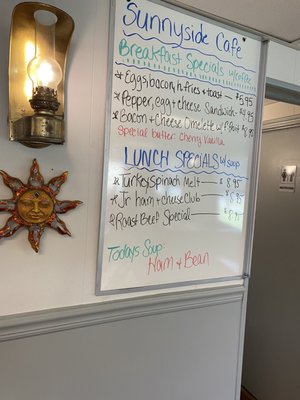 Sunnyside Cafe
Breakfast Specials w/coffee
*Eggs, bacon, h.fries & toast - $5.95
*Pepper, egg & cheese Sandwich -
*Bacon & Cheese Omelette w/
Special butter: Cherry Vanilla
LUNCH SPECIALS w/ soup
*Turkey Spinach Melt - $8.95
*Jr ham & cheese Club $8.95
*Roast Beef Special - $8.95
Todays Soup:
Ham & Bean